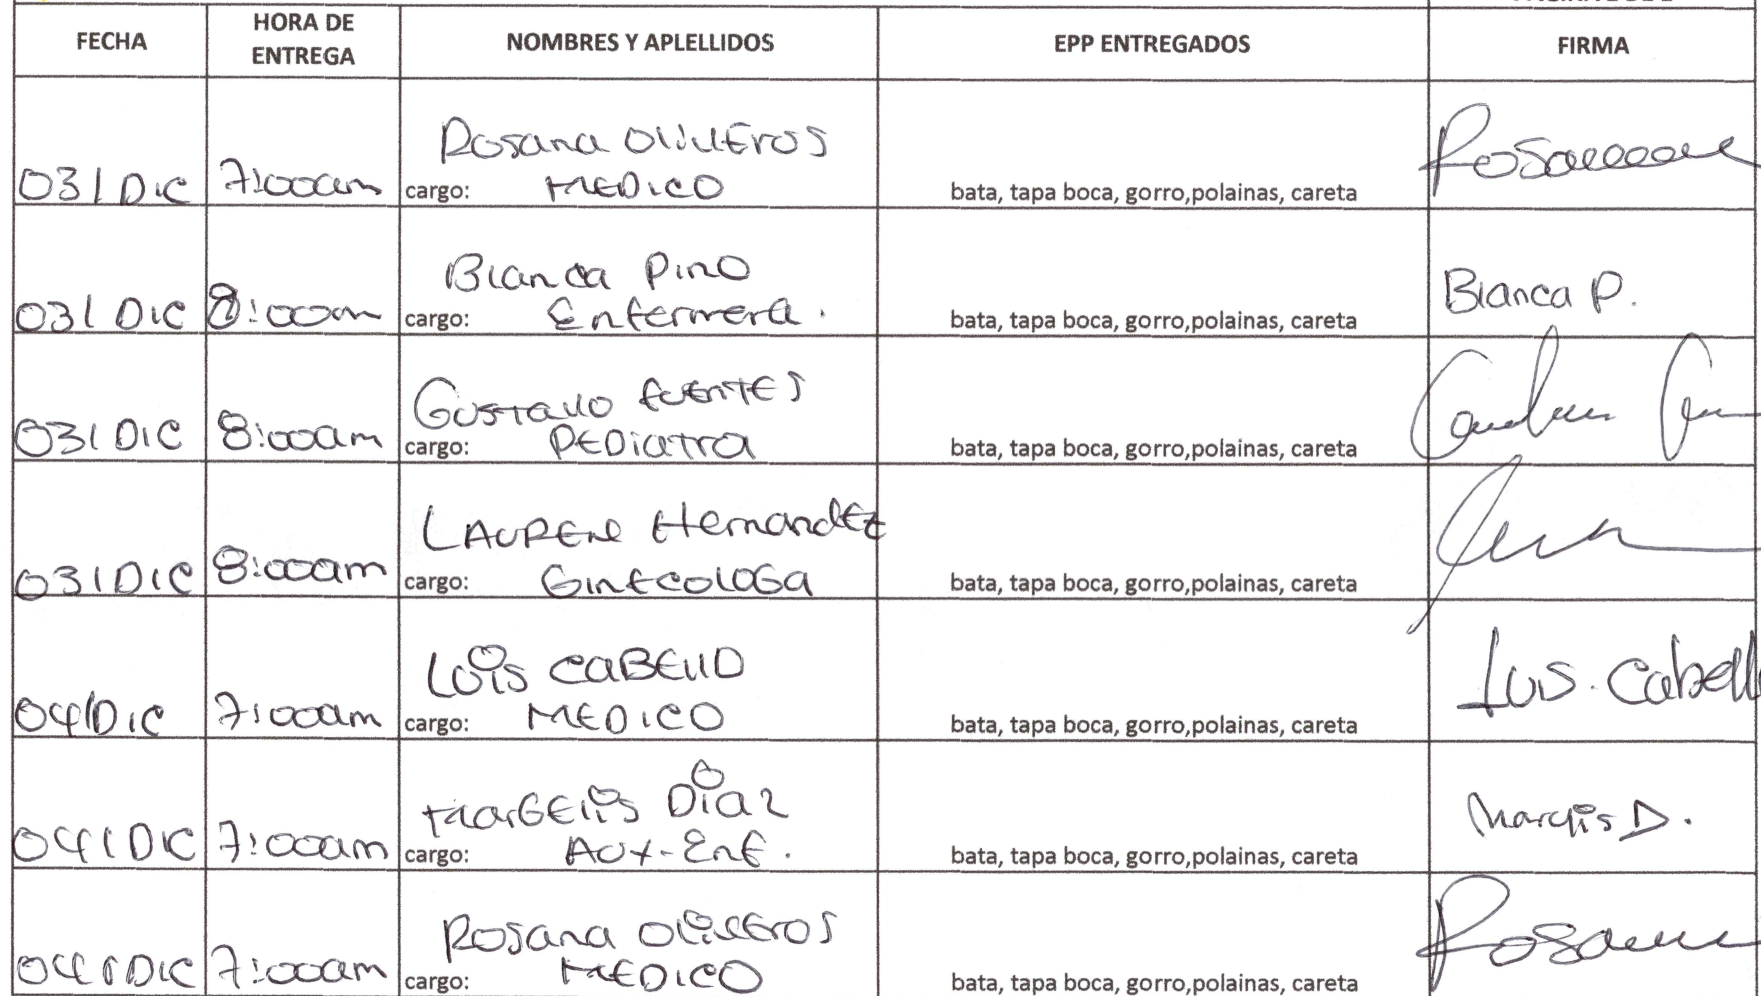 FECHA
HORA DE
ENTREGA
NOMBRES Y APLELLIDOS
EPP ENTREGADOS
FIRMA
03/DIC 7:00am Rosana Oliveros
cargo: MEDICO bata, tapa boca, gorro,polainas, careta
03/DIC 8:00am Blanca Pino Blanca P.
cargo: Enfermera. bata, tapa boca, gorro,polainas, careta
03/DIC 8:00am Gustavo Fuentes
cargo: PEDiatra bata, tapa boca, gorro,polainas, careta
03/DIC 8:00am LAUREN Hernandez
cargo: GinEcOLOGa bata, tapa boca, gorro,polainas, careta
04/DIC 7:00am Luis CABELLO Luis. Cabell
cargo: MEDICO bata, tapa boca, gorro,polainas, careta
04/DIC 7:00am MarGElis Diaz
cargo: AUX-Enf. bata, tapa boca, gorro,polainas, careta
04/DIC 7:00am Rosana Oliveros
cargo: MEDICO bata, tapa boca, gorro,polainas, careta